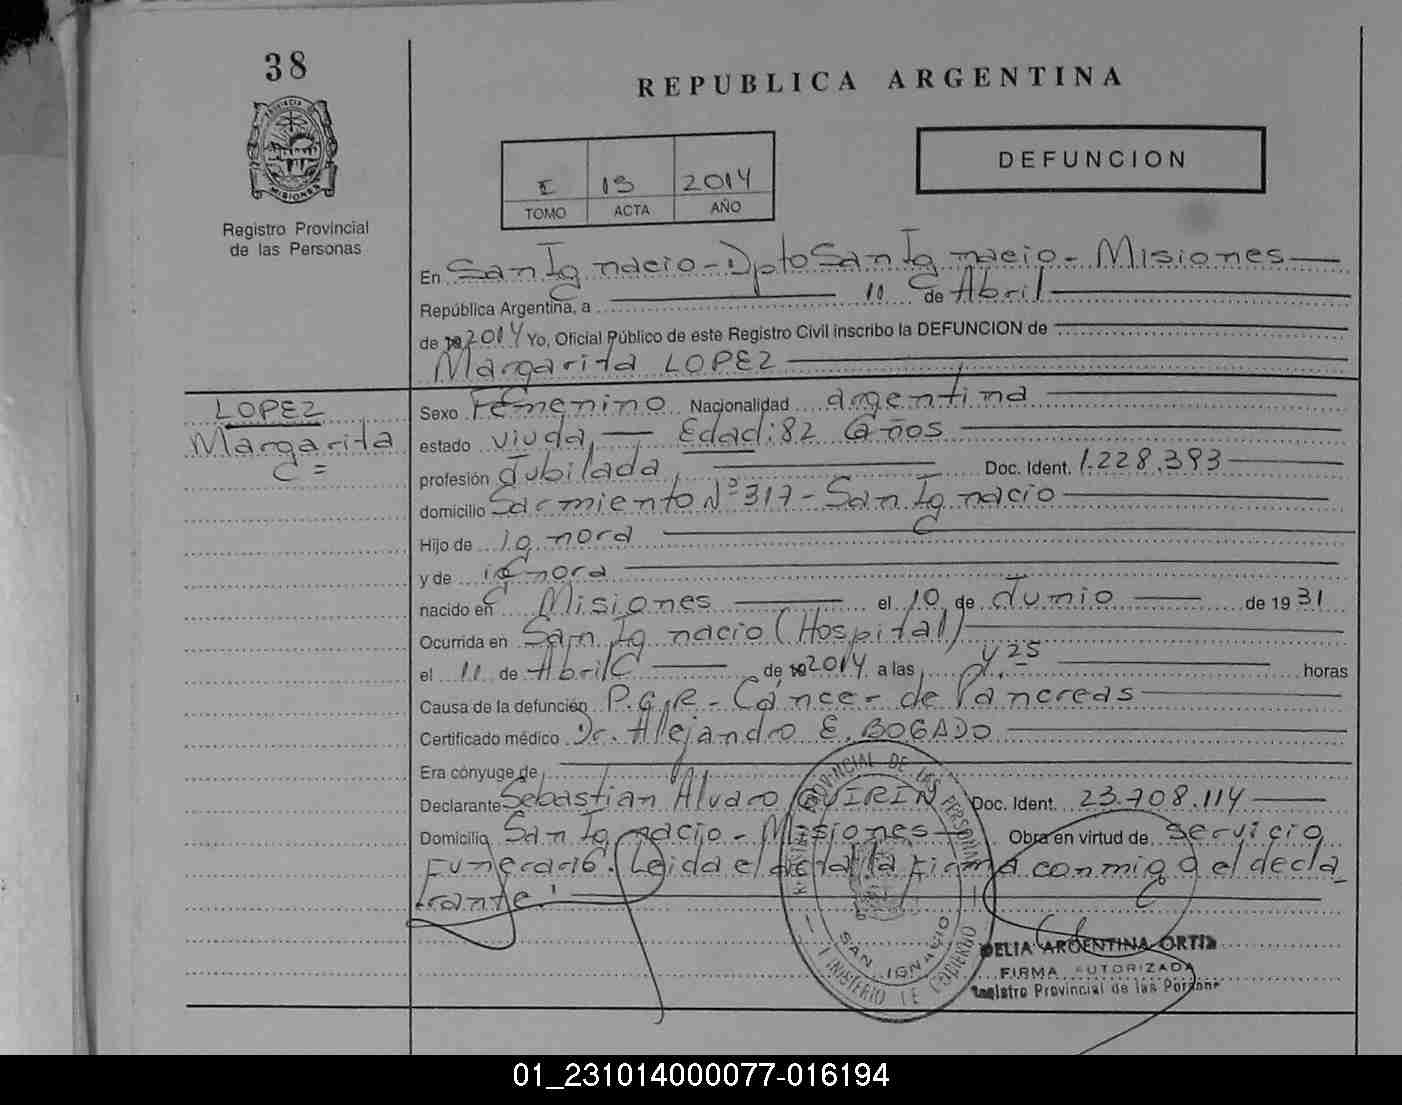 38
REPUBLICA ARGENTINA
DEFUNCION
I 15 2014
TOMO ACTA AÑO
PROVINCIA DE
MISIONES
Registro Provincial
de las Personas
En San Ignacio - Dpto San Ignacio - Misiones
República Argentina, a 11 de Abril
de 19 2014 Yo, Oficial Público de este Registro Civil inscribo la DEFUNCION de
Margarita LOPEZ
LOPEZ
Margarita
Sexo Femenino Nacionalidad argentina
estado viuda, Edad: 82 años
profesión Jubilada, Doc. Ident. 1.228.393
domicilio Sarmiento Nº 317 - San Ignacio
Hijo de ignora
y de ignora
nacido en Misiones el 10 de Junio de 19 31
Ocurrida en San Ignacio (Hospital)
el 11 de Abril de 19 2014 a las y 25 horas
Causa de la defunción P.C.R - Cáncer de Pancreas
Certificado médico Dr. Alejandro E. BOGADO
Era cónyuge de
Declarante Sebastian Alvaro QUIRIN Doc. Ident. 23.708.114
Domicilio San Ignacio - Misiones - Obra en virtud de servicio
Funerario. Leida el acta la firma conmigo el decla
rante.
REGISTRO PROVINCIAL DE LAS PERSONAS
SAN IGNACIO
MINISTERIO DE GOBIERNO
DELIA ARGENTINA ORTIZ
FIRMA AUTORIZADA
Registro Provincial de las Personas
01_231014000077-016194